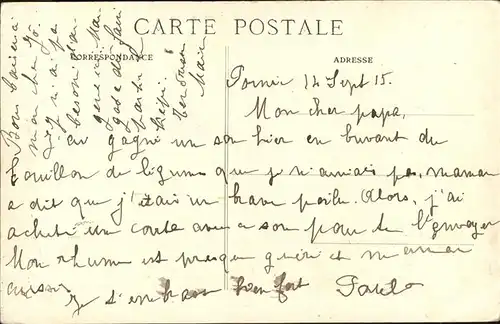 CARTE POSTALE
CORRESPONDANCE
ADRESSE
Pornic 14 Sept 15.
Mon cher papa,
J'ai gagné un sou hier en buvant du
bouillon de légume que je n'aimais pas, maman
a dit que j'étais un brave poilu. Alors, j'ai
acheté une carte avec ce sou pour te l'envoyer
Mon rhume est presque guéri et maman
aussi
Je t'embrasse bien fort
Bons baisers à
mon cher
je n'ai pas
besoin
Maman
par
Képi.
Tendresses
Marie